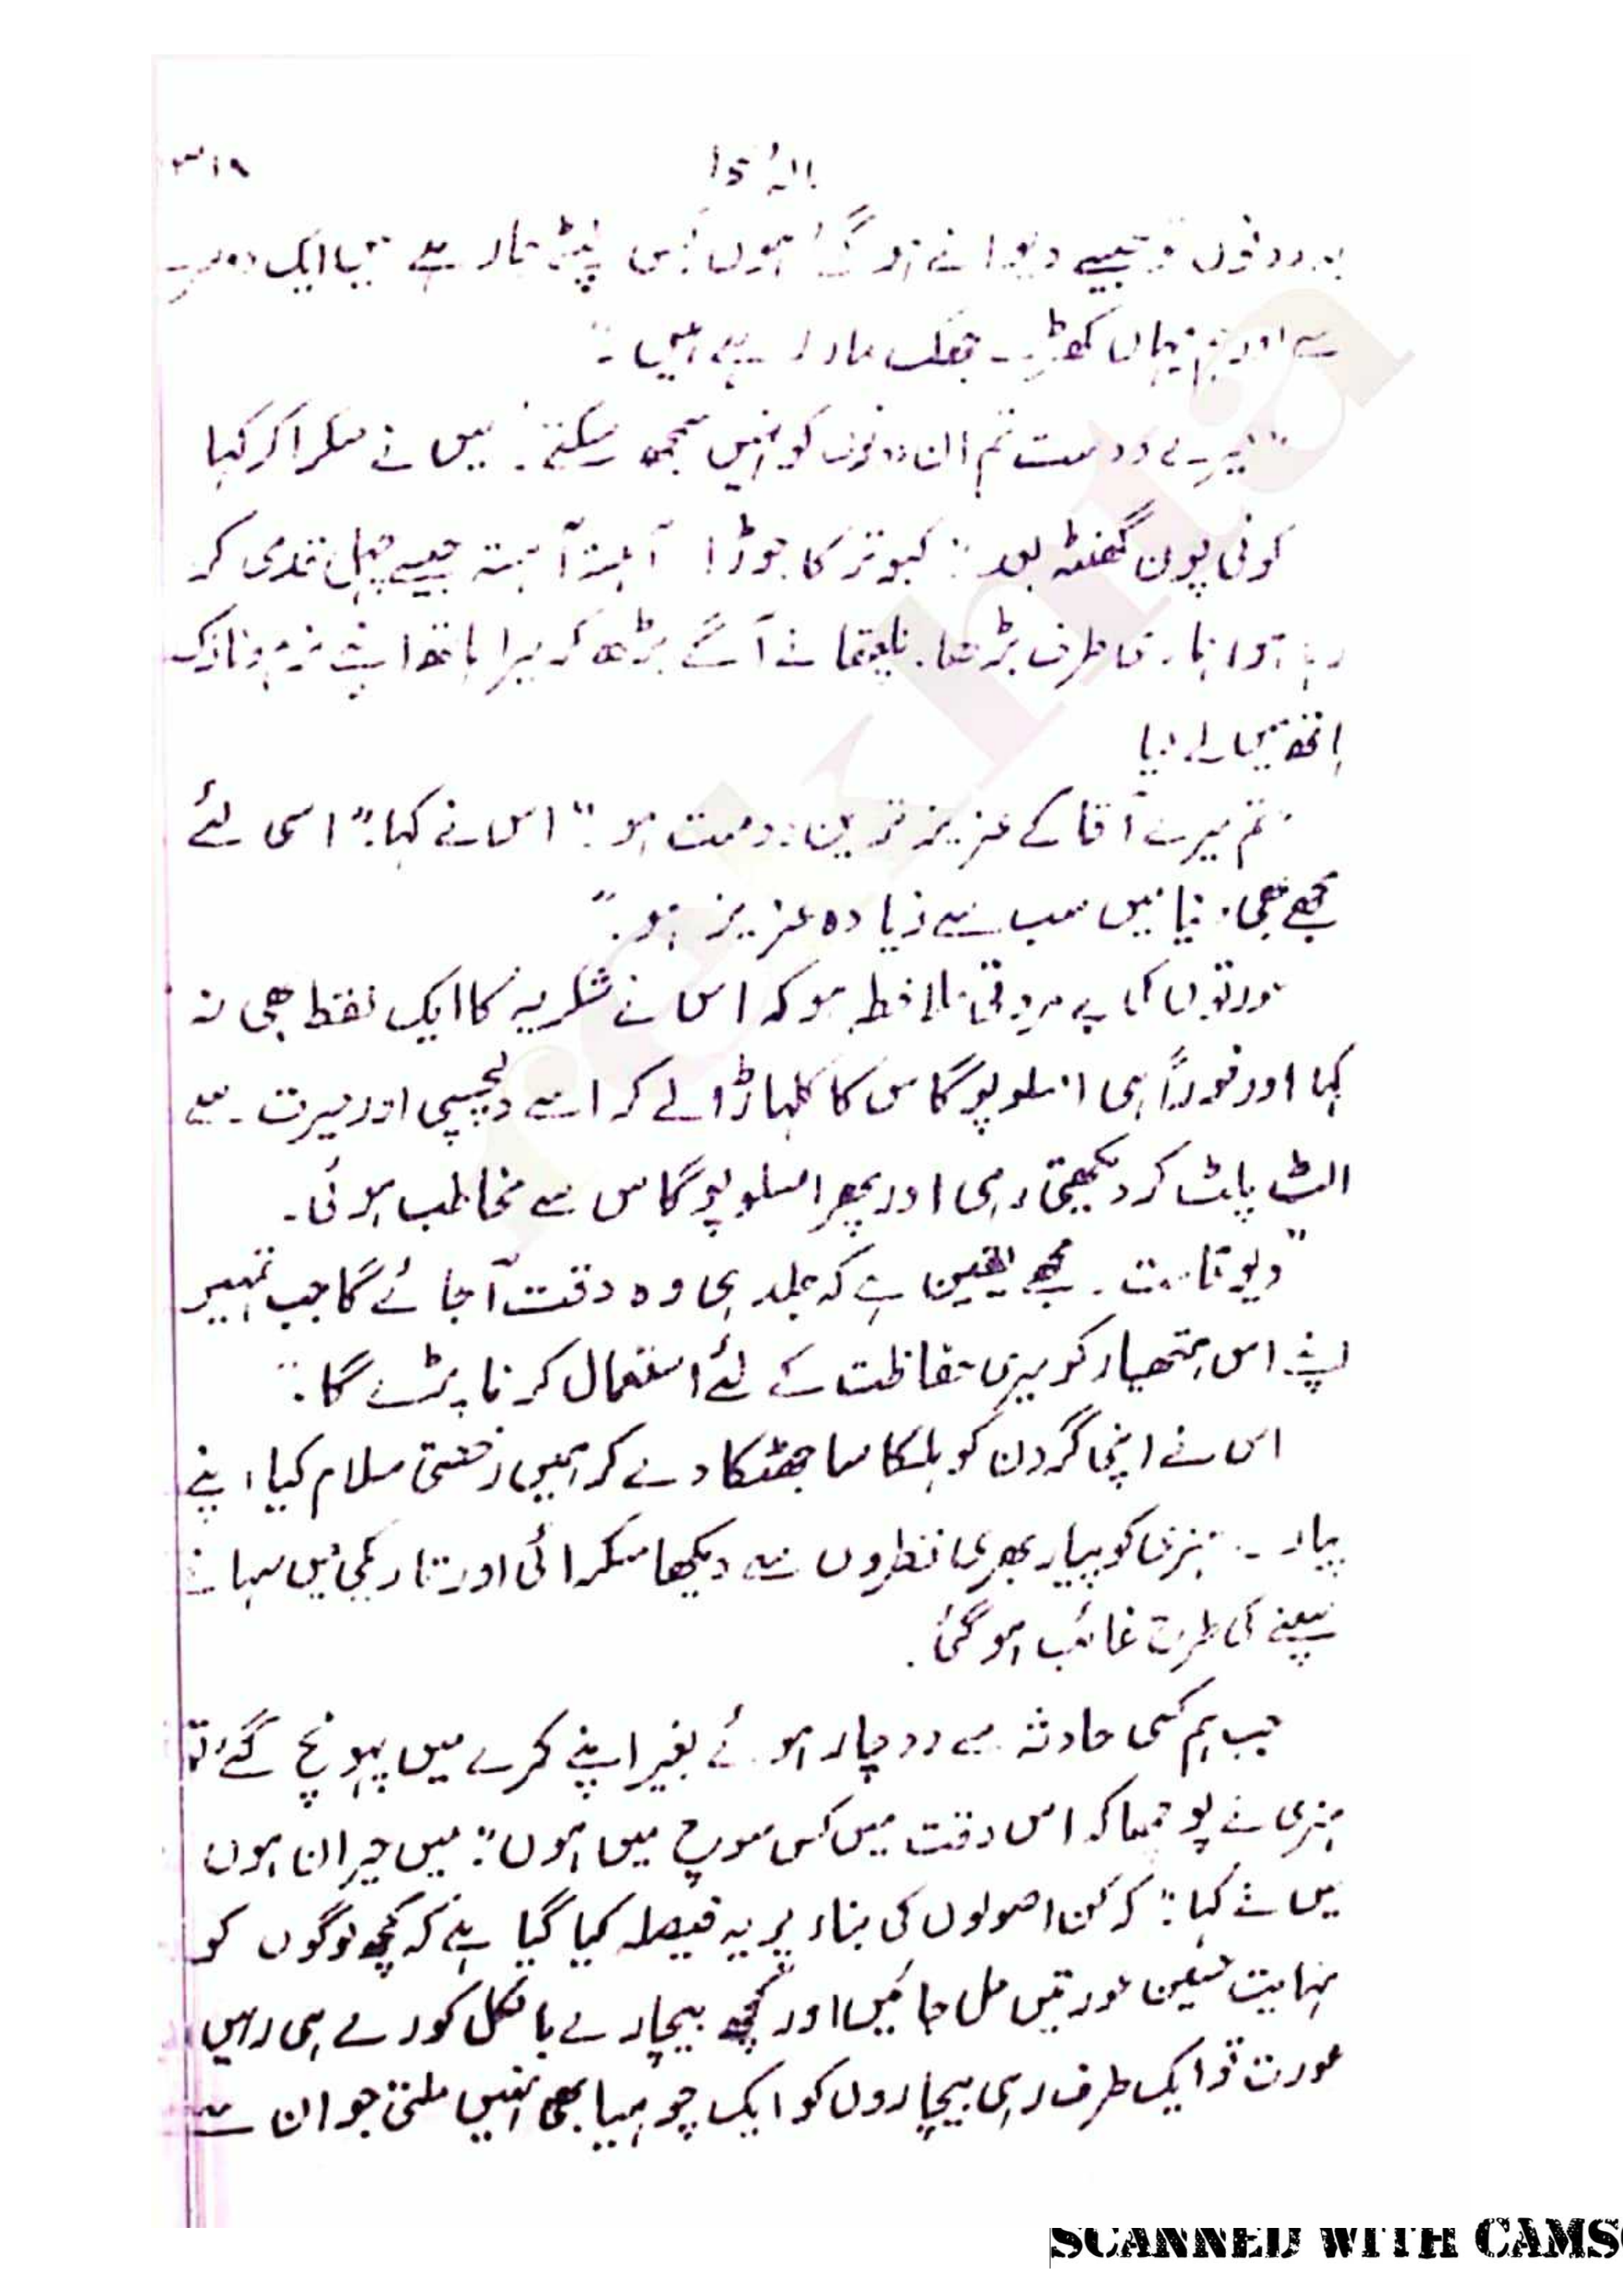 ۳۱۹
یہ دونوں تو جیسے دیوانے ہو گئے ہوں کس چمٹے جا رہے ہیں ایک دوسرے
سے اور ہم یہاں کھڑے جھک مار رہے ہیں۔"
"میرے دوست تم ان دونوں کو نہیں سمجھ سکتے۔" میں نے مسکرا کر کہا
کوئی پون گھنٹہ بعد "کبوتر کا جوڑا" آہستہ آہستہ جیسے چہل قدمی کر
رہا ہو ہماری طرف بڑھا۔ نلیفتا نے آگے بڑھ کر میرا ہاتھ اپنے نرم و نازک
ہاتھ میں لے لیا
"تم میرے آقا کے عزیز ترین دوست ہو۔" اس نے کہا۔ "اسی لئے
مجھے بھی دنیا میں سب سے زیادہ عزیز ہو۔"
عورتوں کی بے مروتی ملاحظہ ہو کہ اس نے شکریہ کا ایک لفظ بھی نہ
کہا اور فوراً ہی امسلوپوگاس کا کلہاڑا لے کر اسے دلچسپی اور حیرت سے
الٹ پلٹ کر دیکھتی رہی اور پھر امسلوپوگاس سے مخاطب ہوئی۔
"دیو قامت۔ مجھے یقین ہے کہ جلد ہی وہ وقت آ جائے گا جب تمہیں
اپنے اس ہتھیار کو میری حفاظت کے لئے استعمال کرنا پڑے گا۔"
اس نے اپنی گردن کو ہلکا سا جھٹکا دے کر ہمیں رخصتی سلام کیا، اپنے
پیارے ہنری کو پیار بھری نظروں سے دیکھا مسکرائی اور تاریکی میں سہانے
سپنے کی طرح غائب ہو گئی۔
جب ہم کسی حادثہ سے دوچار ہوئے بغیر اپنے کمرے میں پہونچ گئے تو
ہنری نے پوچھا کہ اس وقت میں کس سوچ میں ہوں؟ "میں حیران ہوں
میں نے کہا: "کہ کن اصولوں کی بناء پر یہ فیصلہ کیا گیا ہے کہ کچھ لوگوں کو
نہایت حسین عورتیں مل جائیں اور کچھ بیچارے بالکل کورے ہی رہیں
عورت تو ایک طرف رہی بیچاروں کو ایک چوہیا بھی نہیں ملتی جو ان سے
SCANNED WITH CAMS
rekhta